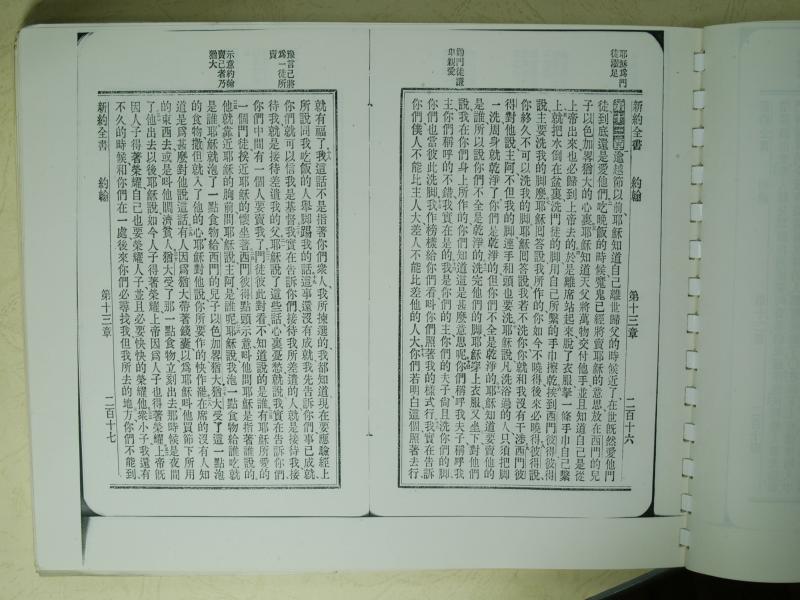 耶穌爲門
徒濯足
勸門徒謙
卑親愛
新約全書 約翰 第十三章 二百十六
第十三章逾越節以前耶穌知道自己離世歸父的時候近了在世旣然愛他門
徒到底還是愛他們吃晚飯的時候魔鬼已經將賣耶穌的意思放在西門的兒
子以色加畧猶大的心裏耶穌知道天父將萬物交付他手並且知道自己是從
上帝出來也必歸到上帝去的於是離席站起來脫了衣服拏一條手巾自己繫
上就把水倒在盆裏洗門徒的脚用自己所繫的手巾擦乾挨到西門彼得彼得
說主要洗我的脚麽耶穌回答說我所作的你如今不曉得後來必曉得彼得說
你終久不可以洗我的脚耶穌回答說我若不洗你你就和我沒有干涉西門彼
得對他說主阿不但我的脚連手和頭也要洗耶穌說凡洗浴過的人只須把脚
一洗周身就乾淨了你們是乾淨的但你們不全是乾淨的耶穌知道要賣他的
是誰所以說你們不全是乾淨的洗完他們的脚耶穌穿上衣服又坐下對他們
說我在你們身上所作的你們知道這是甚麽意思呢你們稱呼我夫子稱呼我
主你們稱呼的不錯我實在是的我是你們的主你們的夫子尙且洗你們的脚
你們也當彼此洗脚我作榜樣給你們看叫你們照著我的樣式行我實在告訴
你們僕人不能比主人大差人不能比差他的人大你們若明白這個照著去行
豫言已將
爲一徒所
賣
示意約翰
賣己者乃
猶大
就有福了我這話不是指著你們衆人我所揀選的我都知道現在要應驗經上
所說同我吃飯的人舉脚踢我的話這事還沒有成就我先告訴你們事已成就
你們就可以信我是基督我實在告訴你們接待我所差遣的人的就是接待我接
待我就是接待差遣我的父耶穌說了這些話心裏憂愁就說我實在告訴你們
你們中間有一個人要賣我了門徒彼此對看不知道說的是誰有耶穌所愛的
一個門徒挨近耶穌的懷坐著西門彼得點頭示意叫他問耶穌是指著誰說的
他就靠近耶穌的胸前問耶穌說主阿是誰呢耶穌說我泡一點食物給誰吃就
是誰耶穌就泡了一點食物給西門的兒子以色加畧猶大猶大受了這一點泡
的食物撒但就入了他的心耶穌對他說你所要作的快作罷在席的沒有人知
道是爲甚麽對他說這話有人因爲猶大帶著錢囊以爲耶穌叫他買節下所用
的東西去或是叫他賙濟貧人猶大受了那一點食物立刻出去那時候是夜間
了他出去以後耶穌說如今人子得著榮耀上帝因爲人子也得著榮耀上帝旣
因人子得著榮耀自己也要榮耀人子並且必要快快的榮耀他衆小子我還有
不久的時候和你們在一處後來你們必尋找我但我所去的地方你們不能到
新約全書 約翰 第十三章 二百十七